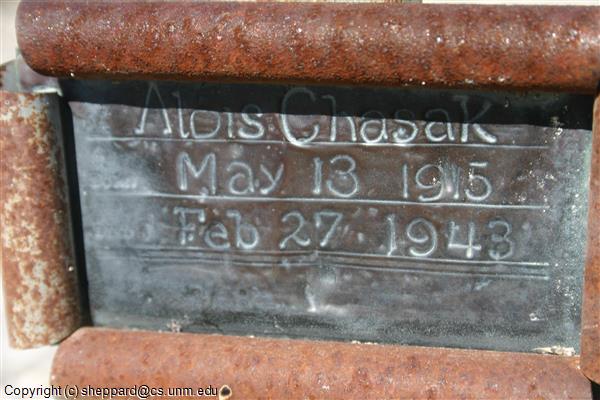 Alois Chasak
May 13 1915
Feb 27 1943
Copyright (c) sheppard@cs.unm.edu